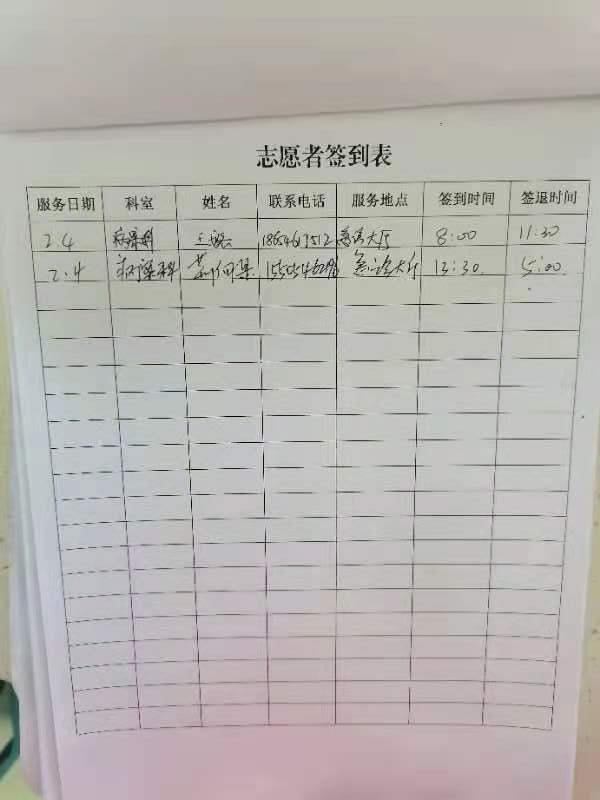 志愿者签到表
服务日期 科室 姓名 联系电话 服务地点 签到时间 签退时间
2.4 病理科 急诊大厅 8:00 11:30
2.4 病理科 急诊大厅 13:30 5:00